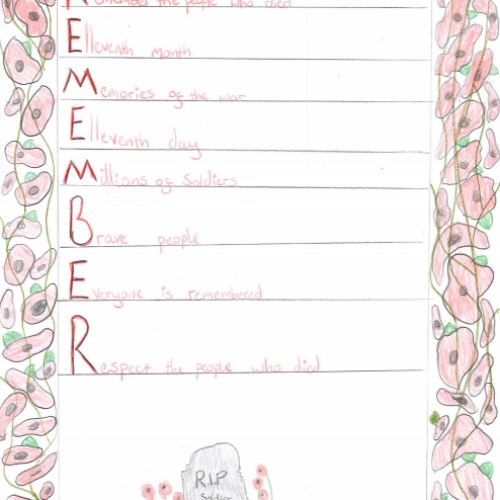 Remember the people who died
Elleventh month
Memories of the war
Elleventh day
Millions of Soldiers
Brave people
Everyone is remembered
Respect the people who died
RIP
Soldier